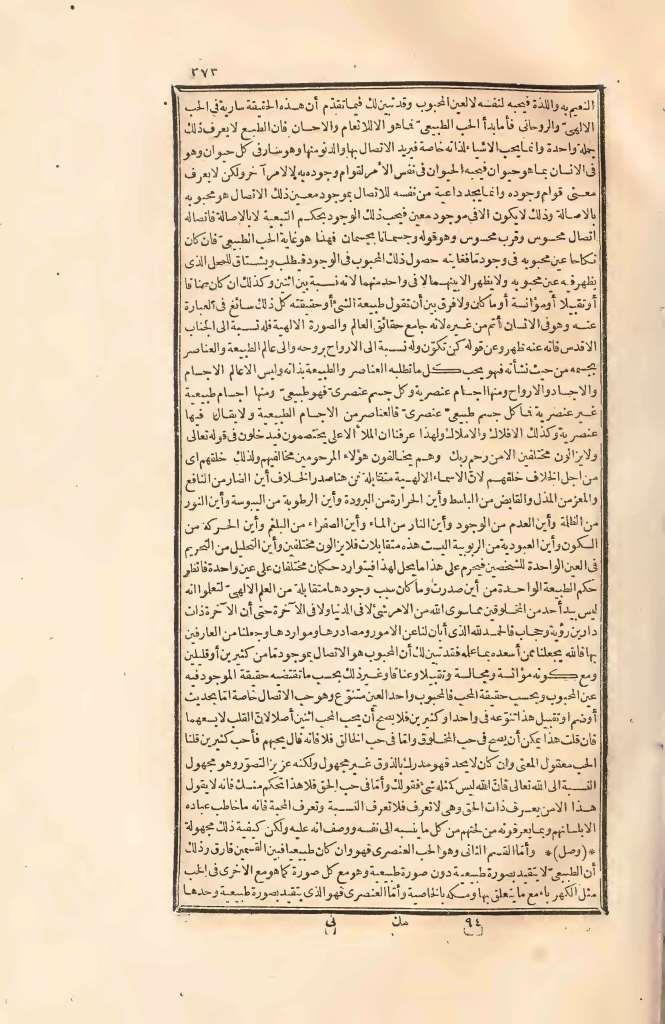 ٣٧٣
النعيم به واللذة فيحبه لنفسه لا لعين المحبوب وقد تبين لك فيما تقدم أن هذه الحقيقة سارية في الحب
الالهي والروحاني فأما بدأ الحب الطبيعي فما هو الا للانعام والاحسان فان الطبع لا يعرف ذلك
جملة واحدة وانما يحب الاشياء لذاته خاصة فيريد الاتصال بها والدنو منها وهو سار في كل حيوان وهو
في الانسان بما هو حيوان فيحبه الحيوان في نفس الأمر لقوام وجوده به لا لامر آخر ولكن لا يعرف
معنى قوام وجوده وانما يجد داعية من نفسه للاتصال بموجود معين ذلك الاتصال هو محبوبه
بالاصالة وذلك لا يكون الا في موجود معين فيحب ذلك الموجود بحكم التبعية لا بالاصالة فاتصاله
اتصال محسوس وقرب محسوس وهو قوله وجسمانا بجسمان فهذا هو غاية الحب الطبيعي فان كان
نكاحا عين محبوبه في وجود ما فغايته حصول ذلك المحبوب في الوجود فيطلب ويشتاق للمحل الذي
يظهر فيه عين محبوبه ولا يظهر الا بينهما لا في واحد منهما لانه نسبة بين اثنين وكذلك ان كان عناقا
أو تقبيلا أو مؤانسة أو ما كان ولا فرق بين أن تقول طبيعة الشئ أو حقيقته كل ذلك سائغ في العبارة
عنه وهو في الانسان أتم من غيره لانه جامع حقائق العالم والصورة الالهية فله نسبة الى الجناب
الاقدس فانه عنه ظهر وعن قوله كن تكوّن وله نسبة الى الارواح بروحه والى عالم الطبيعة والعناصر
بجسمه من حيث نشأته فهو يحب كل ما تطلبه العناصر والطبيعة بذاته وليس الا عالم الاجسام
والاجساد والارواح ومنها اجسام عنصرية وكل جسم عنصري فهو طبيعي ومنها اجسام طبيعية
غير عنصرية فما كل جسم طبيعي عنصري فالعناصر من الاجسام الطبيعية ولا يقال فيها
عنصرية وكذلك الافلاك والاملاك ولهذا عرفنا ان الملأ الاعلى يختصمون فيدخلون في قوله تعالى
ولا يزالون مختلفين الا من رحم ربك وهم يخالفون هؤلاء المرحومين مخالفيهم ولذلك خلقهم اى
من اجل الخلاف خلقهم لانّ الاسماء الالهية متقابلة فمن هنا صدر الخلاف أين الضار من النافع
والمعز من المذل والقابض من الباسط وأين الحرارة من البرودة وأين الرطوبة من اليبوسة وأين النور
من الظلمة وأين العدم من الوجود وأين النار من الماء وأين الصفراء من البلغم وأين الحركة من
السكون وأين العبودية من الربوبية اليست هذه متقابلات فلا يزالون مختلفين وأين التحليل من التحريم
في العين الواحدة للشخصين فيحرم على هذا ما يحل لهذا فيتوارد حكمان مختلفان على عين واحدة فانظر
حكم الطبيعة الواحدة من أين صدرت وما كان سبب وجودها متقابلة من العلم الالهي لتعلموا انه
ليس بيد أحد من المخلوقين مما سوى الله من الامر شئ لا في الدنيا ولا في الآخرة حتى أن الآخرة ذات
دارين رؤية وحجاب فالحمد لله الذى أبان لنا عن الامور ومصادرها ومواردها وجعلنا من العارفين
بها فالله يجعلنا ممن أسعده بما علمه فقد تبين لك أن المحبوب هو الاتصال بموجود ما من كثيرين أو قليلين
ومع كونه مؤانسة ومجالسة وتقبيلا وعناقا وغير ذلك بحسب ما تقتضيه حقيقة الموجود فيه
عين المحبوب وبحسب حقيقة المحب فالمحبوب واحد العين متنوّع وهو حب الاتصال خاصة امّا بحديث
أو ضم او تقبيل هذا تنوّعه في واحد او كثيرين فلا يصح أن يحب المحب اثنين أصلا لانّ القلب لا يسعهما
فان قلت هذا يمكن أن يصح في حب المخلوق وامّا في حب الخالق فلا فانه قال يحبهم فأحب كثيرين قلنا
الحب معقول المعنى وان كان لا يحد فهو مدرك بالذوق غير مجهول ولكنه عزيز التصوّر وهو مجهول
النسبة الى الله تعالى فانّ الله ليس كمثله شئ فقولك وأمّا في حب الحق فلا هذا تحكم منك فانه لا يقول
هذا الامن يعرف ذات الحق وهى لا تعرف فلا تعرف النسبة وتعرف المحبة فانه ما خاطب عباده
الا بلسانهم وبما يعرفونه من لحنهم من كل ما ينسبه الى نفسه ووصف انه عليه ولكن كيفية ذلك مجهولة
* (وصل) * وأمّا القسم الثانى وهو الحب العنصرى فهو وان كان طبيعيا فبين القسمين فارق وذلك
أن الطبيعى لا يتقيد بصورة طبيعية دون صورة طبيعية وهو مع كل صورة كما هو مع الاخرى فى الحب
مثل الكهرباء مع ما يتعلق بها ومسكه بالخاصية وأمّا العنصرى فهو الذى يتقيد بصورة طبيعية وحدها
٩٤ مك نى